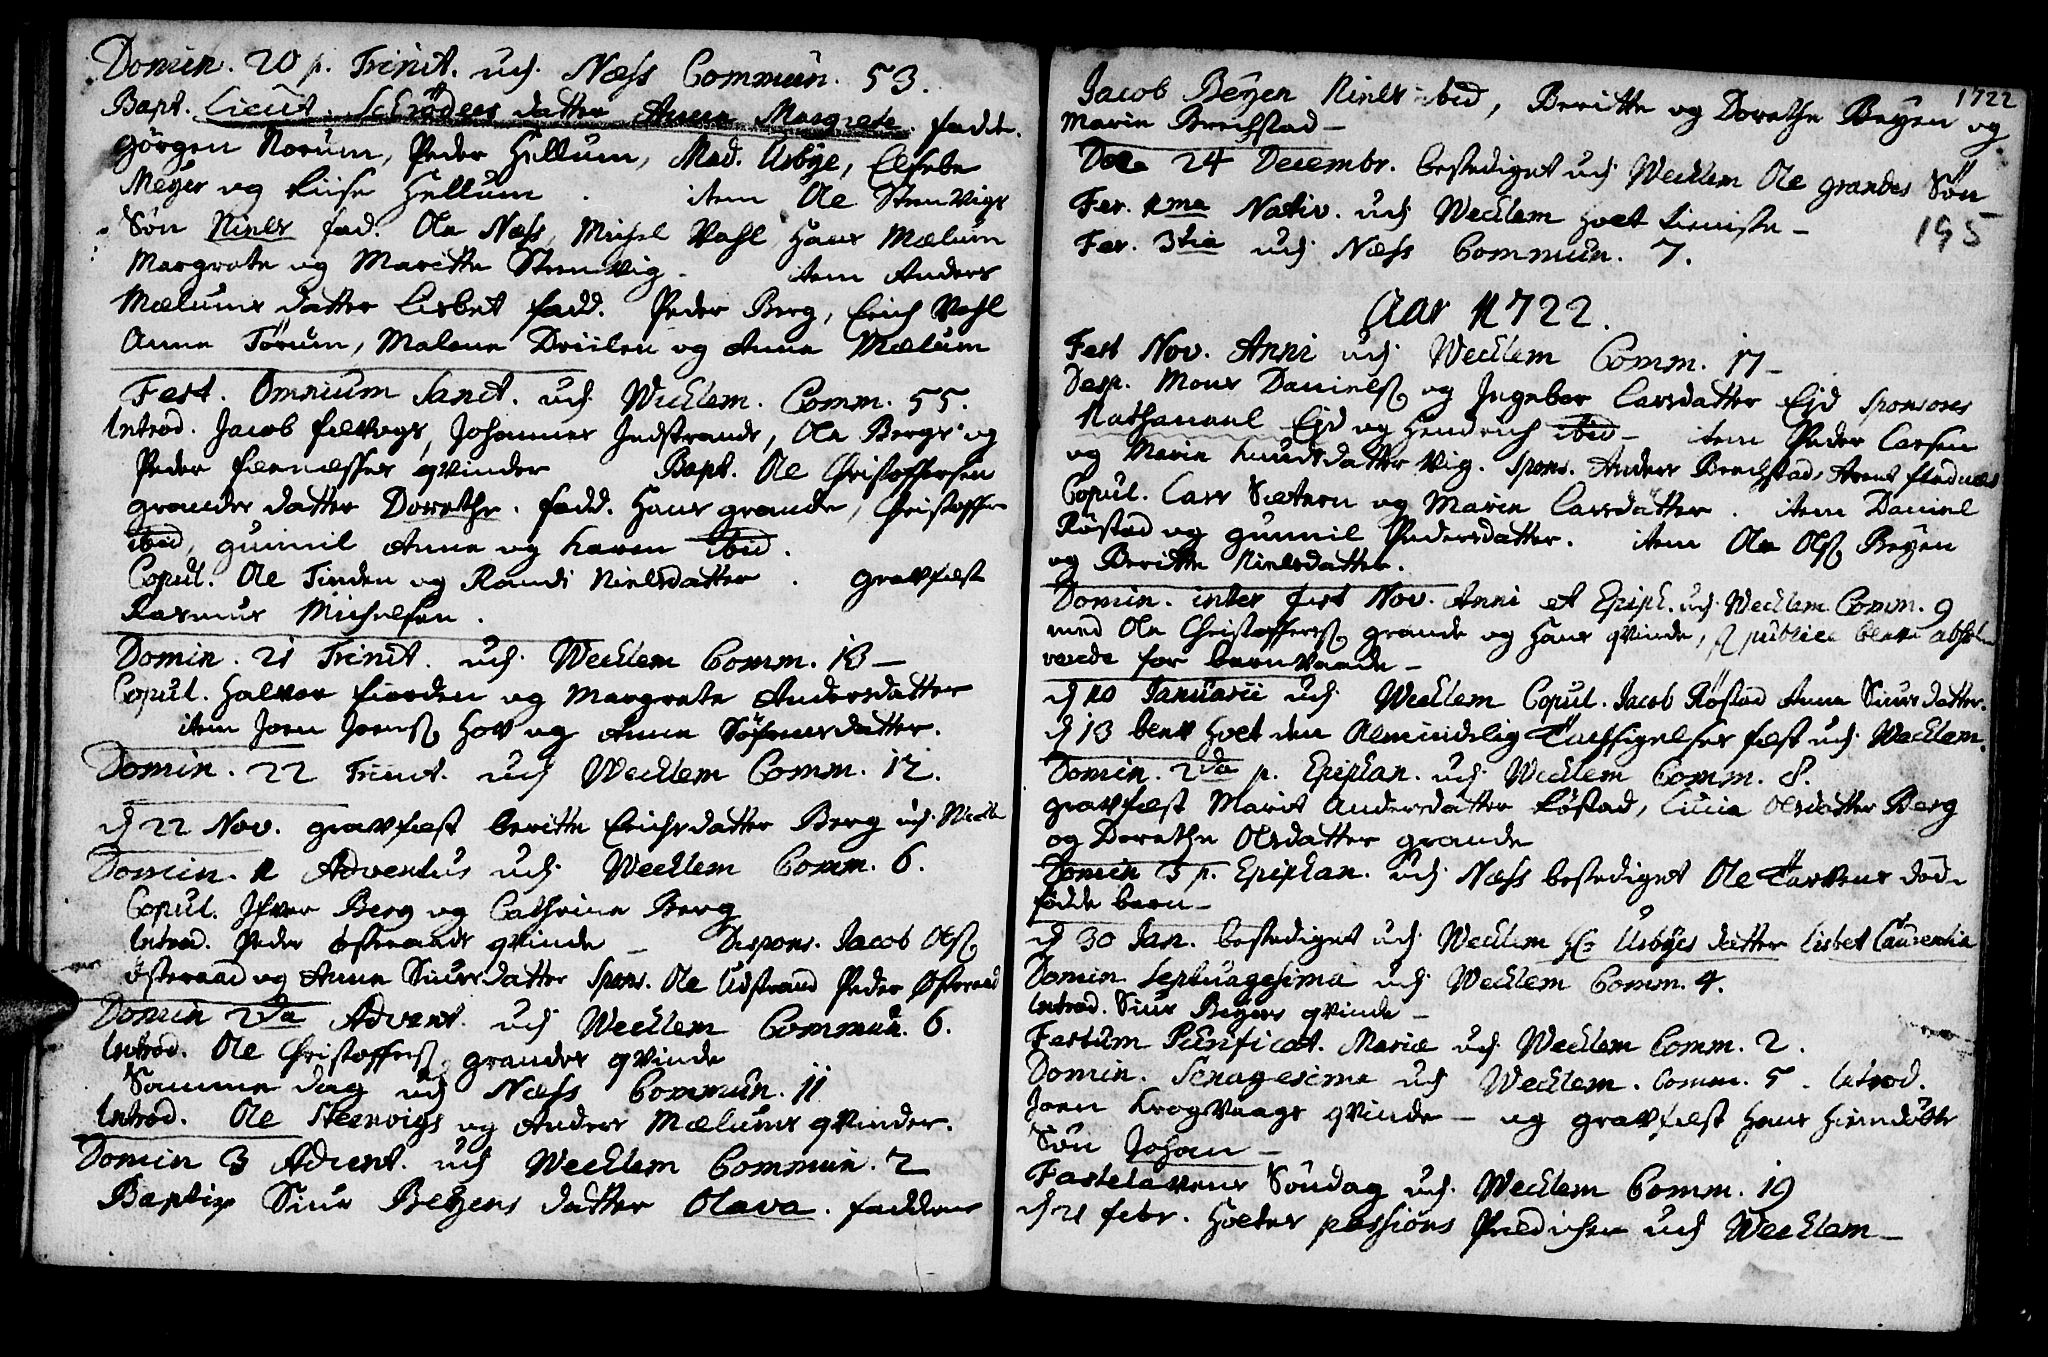 Domin. 20 p. Trinit. udj Næss Commun. 53.
Bapt. Lieut. Schröders datter Anna Margrete. fadd.
Jörgen Norum, Peder Hellum, Mad. Usbÿe, Elsebe
Meÿer og Luise Hellum. item Ole Stenvigs
Søn Niels fad. Ole Næss, Michel Vahl, Hans Mælum
Margrete og Maritte Stenvig. item Anders
Mælums datter Lisbet fadd. Peder Berg, Erich Vahl
Anne Tørum, Malene Driilen og Anne Mælum
Fest. Omnium Sanct. udj Wechlem. Comm. 55.
Introd. Jacob, Johannes Indstrands, Ole Bergs og
Peder qvinder Bapt. Ole Christoffersen
grandes datter Dorethe. fadd. Hans grande, Christoffer
ibid, gunnil Anne og Karen ibid.
Copul. Ole Tinden og Randi Nielsdatter. gravfæst
Rasmus Michelsen.
Domin. 21 Trinit. udj Wechlem Comm. 13 –
Copul. Halvor Fiorden og Margrete Andersdatter
item Joen Joens. Hov og Anne Söfrensdatter.
Domin. 22 Trinit. udj Wechlem Comm. 12.
d 22 Nov. gravfæst beritte Erichsdatter Berg udj Weckle
Domin. 1 Adventus udj Wechlem Comm. 6.
Copul. Ifver Berg og Cathrine Berg
Introd. Peder Østeraads qvinde – Despons. Jacob Ols.
Østeraad og Anne Siursdatter Spons. Ole Udstrand Peder Østeraad
Domin 2da Advent. udj Wechlem Commun. 6.
Introd. Ole Christoffers. grandes qvinde
Samme dag udj Næss Commun. 11
Introd. Ole Steenvigs og Anders Mælums qvinder.
Domin 3 Advent. udj Wechlem Commun. 2
Baptiz Siur Beÿens datter Olava. faddere
1722
Jacob Beÿen Niels ibid, Beritte og Dorethe Beÿen og
Marin Brechstad –
Den 24 Decembr. bestediget udj Wechlem Ole grandes Søn
195
Fer. 1ma Nativ. udj Wechlem holt tieniste –
Fer. 3tia udj Næss Commun. 7.
Aar 1722.
Fest Nov. Anni udj Wechlem Comm. 17 –
Desp. Mons Daniels. og Ingebor Larsdatter Eid Sponsores
Nathanael Eid og Hendrich ibid – item Peder Larsen
og Marin Knudsdatter Vig. Spons. Anders Brechstad, Arent
Copul. Lars Sætern og Marin Larsdatter. item Daniel
Røstad og gunnil Pedersdatter. item Ole Ols. Beÿen
og Beritte Nielsdatter.
Domin. inter fest Nov. Anni et Epiph. udj Wechlem Comm. 9
med Ole Christoffers. grande og Hans qvinde, publice bleve absol-
verede for barn
d 10 Januarii udj Wechlem Copul. Jacob Røstad Anne Siursdatter.
d 13 blev holt den Almindelig Tachsigelses fæst udj Wechlem.
Domin. 2da p. Epiphan. udj Wechlem Comm. 8.
gravfæst Marit Andersdatter Røstad, Lucia Olsdatter Berg
og Dorethe Olsdatter grande
Domin 3 p. Epiphan. udj Næss bestediget Ole Tarvens død-
fødde barn –
d 30 Jan. bestediget udj Wechlem Hr. Usbÿes datter Lisbet Laurentia
Domin Septuagesima udj Wechlem Comm. 4.
Introd. Siur Beÿens qvinde –
Festum Purificat. Mariæ udj Wechlem Comm. 2.
Domin. Sexagesima udj Wechlem. Comm. 5. Introd.
Joen Krogvaags qvinde – og gravfæst Hans
Søn Johan –
Fastelavens Søndag udj Wechlem Comm. 19
d 21 febr. holtes passions Prædichen udj Wechlem –